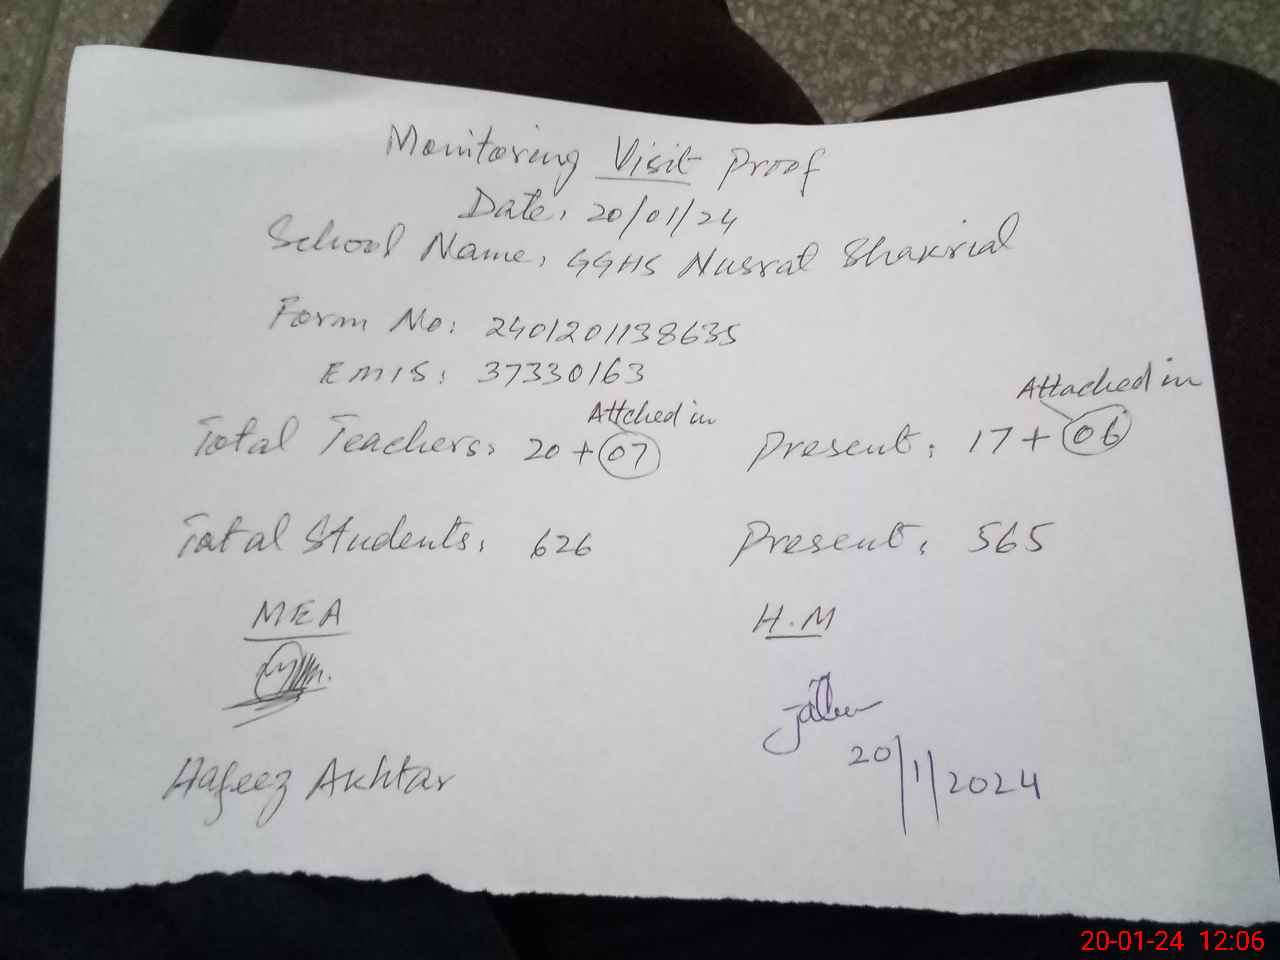 Monitoring Visit Proof
Date, 20/01/24
School Name, GGHS Nusrat Shakrial
Form No: 2401201138635
EMIS: 37330163
Attched in Attached in
Total Teachers: 20 + 07 Present: 17 + 06
Total Students: 626 Present: 565
MEA H.M
Hafeez Akhtar
20/1/2024
20-01-24 12:06